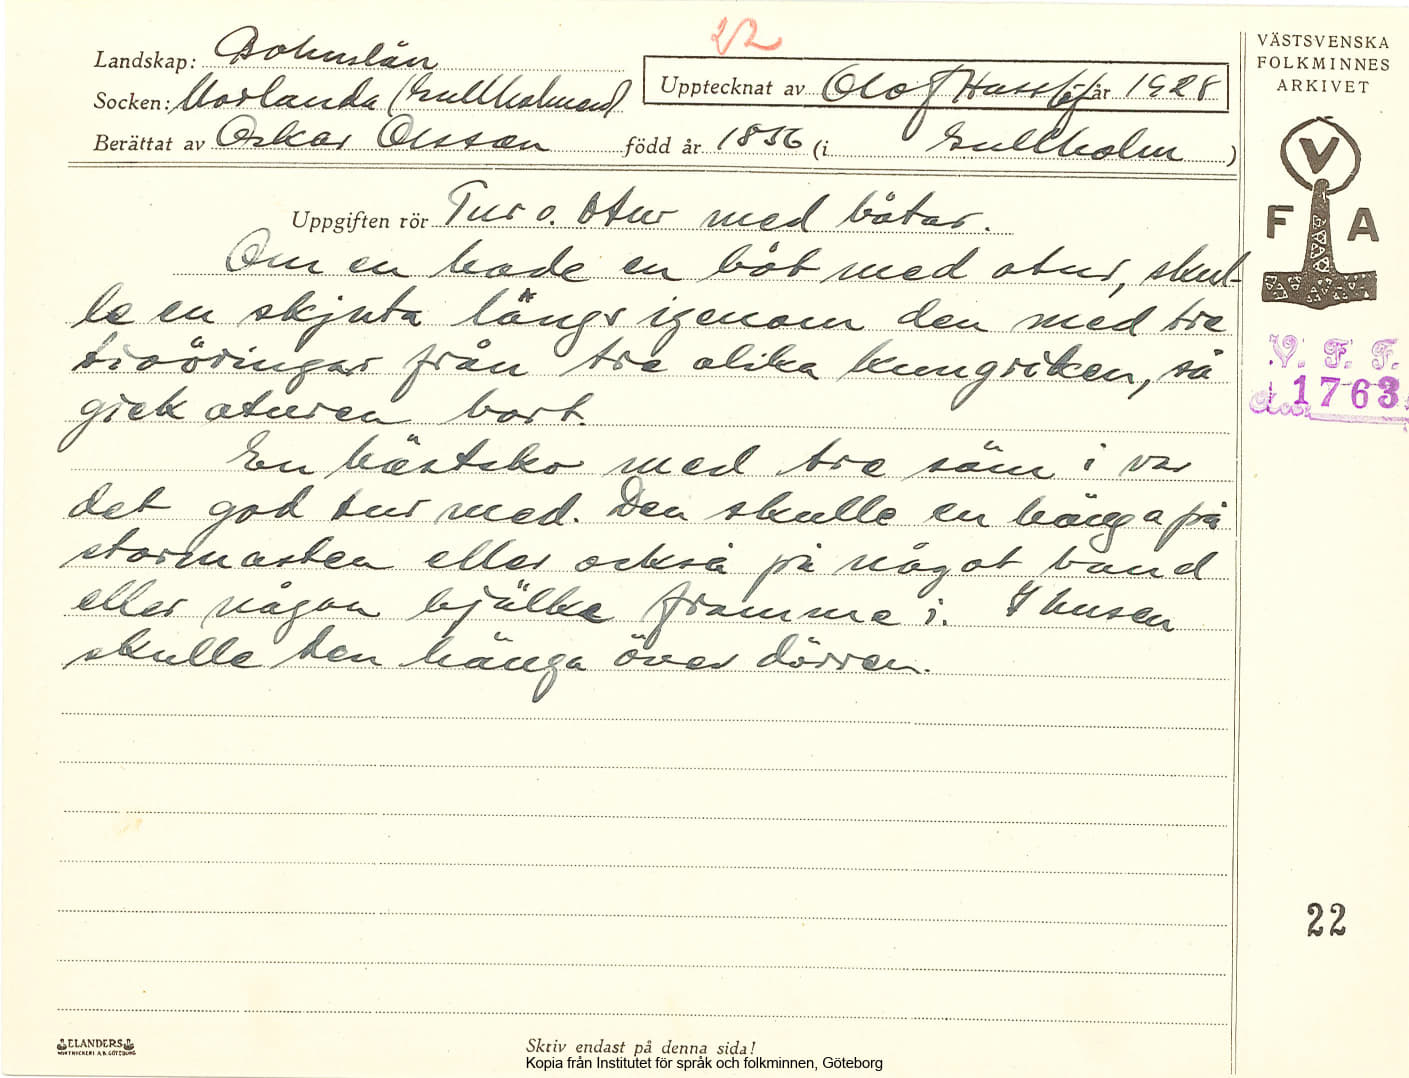 22
Landskap: Bohuslän
Socken: Morlanda (Gullholmen)
Upptecknat av Olof Hasslöf år 1928
Berättat av Oskar Olsson född år 1856 (i Gullholm)
VÄSTSVENSKA
FOLKMINNES
ARKIVET
V
F A
Uppgiften rör Tur o. otur med båtar.
Om en hade en båt med otur, skul-
le en skjuta längs igenom den med tre
treöringar från tre olika kungriken, så
gick oturen bort.
En hästsko med tre söm i var
det god tur med. Den skulle en hänga på
stormasten eller också på något band
eller någon bjälke framme i. I husen
skulle den hänga över dörren.
V. F. F.
1763
22
ELANDERS
Skriv endast på denna sida!
Kopia från Institutet för språk och folkminnen, Göteborg